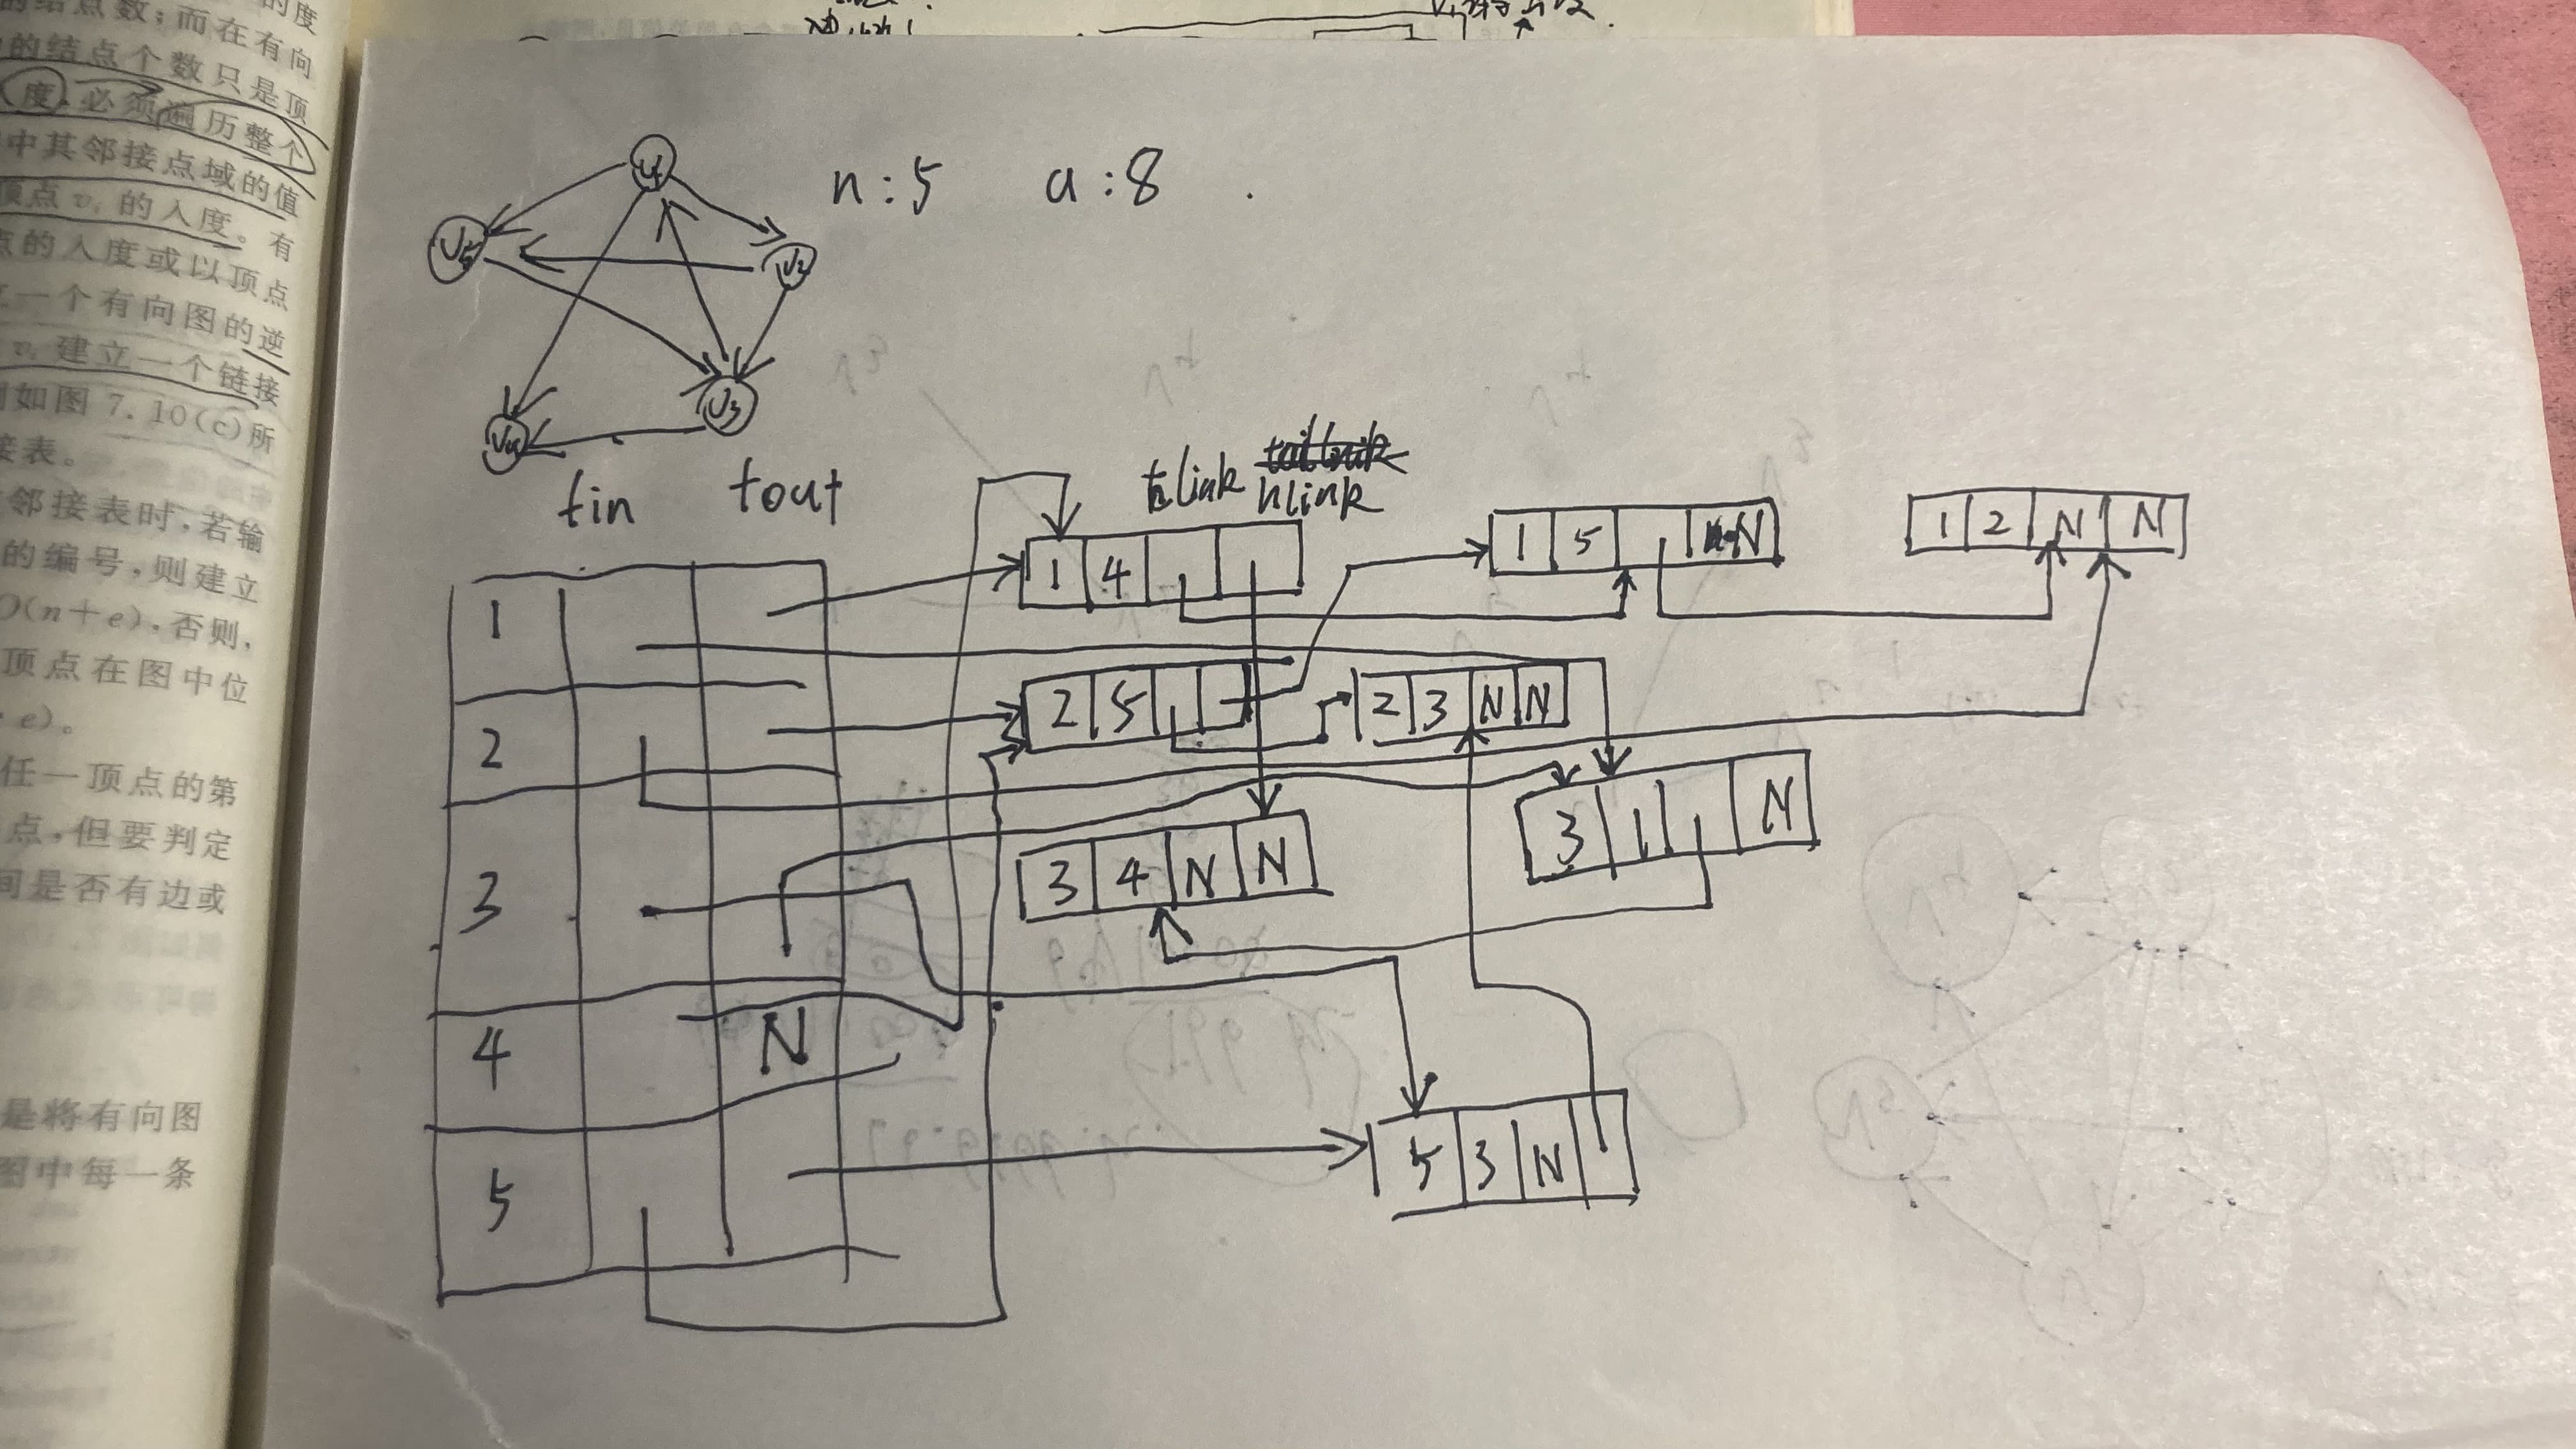 的度
的结点数；而在有向
的结点个数只是顶
度，必须遍历整个
中其邻接点域的值
顶点 vᵢ 的入度。有
点的入度或以顶点
一个有向图的逆
vᵢ 建立一个链接
如图 7.10(c)所
接表。
邻接表时，若输
的编号，则建立
O(n+e)，否则，
顶点在图中位
e)。
任一顶点的第
点，但要判定
间是否有边或
是将有向图
图中每一条
V1
n:5 a:8
V5 V2
V3
V4
fin tout
tlink
hlink
1 1 4 1 5 N 1 2 N N
2 2 5 2 3 N N
3 3 4 N N 3 1 N
4 N
5 5 3 N